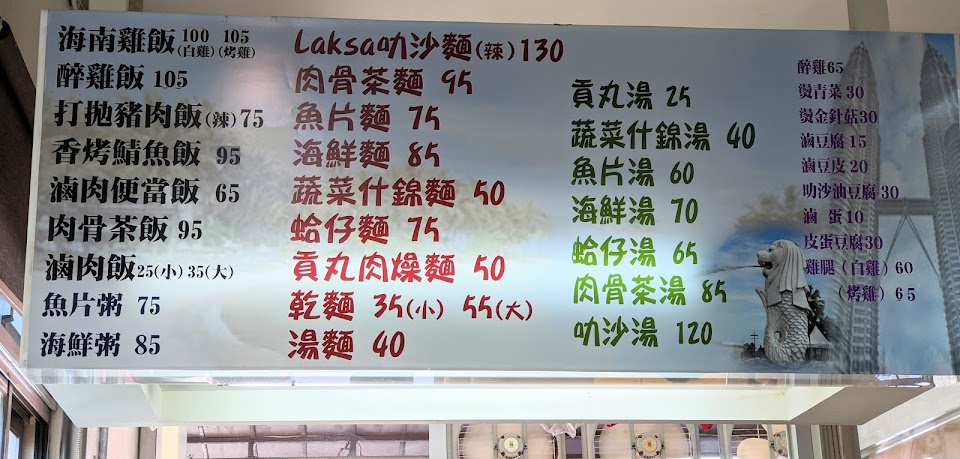 海南雞飯 100 105
(白雞)(烤雞)
醉雞飯 105
打拋豬肉飯(辣) 75
香烤鯖魚飯 95
滷肉便當飯 65
肉骨茶飯 95
滷肉飯25(小) 35(大)
魚片粥 75
海鮮粥 85
Laksa叻沙麵(辣) 130
肉骨茶麵 95
魚片麵 75
海鮮麵 85
蔬菜什錦麵 50
蛤仔麵 75
貢丸肉燥麵 50
乾麵 35(小) 55(大)
湯麵 40
貢丸湯 25
蔬菜什錦湯 40
魚片湯 60
海鮮湯 70
蛤仔湯 65
肉骨茶湯 85
叻沙湯 120
醉雞65
燙青菜 30
燙金針菇30
滷豆腐 15
滷豆皮 20
叻沙油豆腐 30
滷 蛋 10
皮蛋豆腐30
雞腿 (白雞) 60
(烤雞) 65